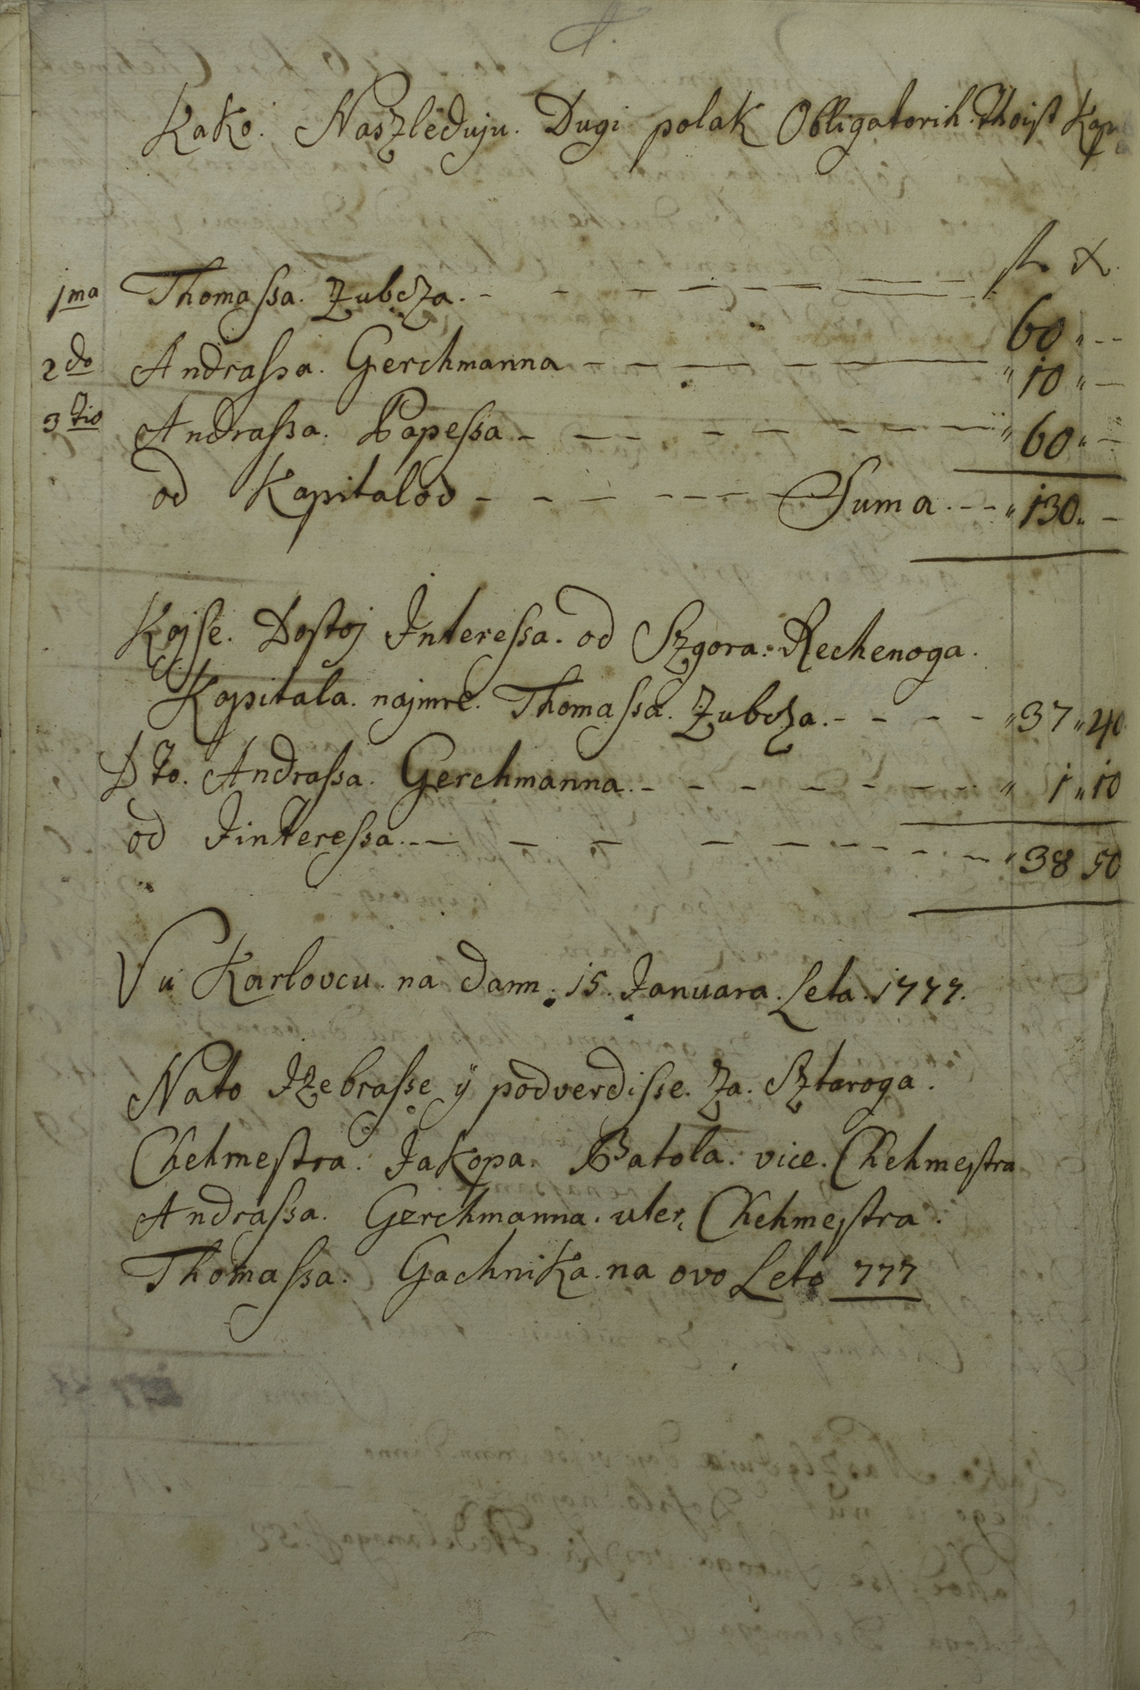 Kako. Naszleduju. Dugi polak Obligatorih. Thojst Kap
fl x.
1ma Thomassa. Zubcza. - - - - 60 " --
2do Andrassa. Gerchmanna - - - - " 10 " -
3tio Andrassa. Papessa - - - - " 60 " -
od Kapitalov - - - - Suma. -- " 130 " -
Kojse. Dostoj Interessa. od Szgora. Rechenoga.
Kapitala. najmre. Thomassa. Zubcza. - - - - " 37 " 40
Dto. Andrassa. Gerchmanna. - - - - " 1 " 10
od Jinteressa. - - - - " 38 50
Vu Karlovcu. na dann. 15. Januara. Leta. 1777.
Nato Izebrasse ÿ podverdisse. Za. Sztaroga.
Chehmestra. Jakopa. Batola. vice. Chehmestra
Andrassa. Gerchmanna. uter, Chehmestra.
Thomassa. Gachnika. na ovo Leto 777